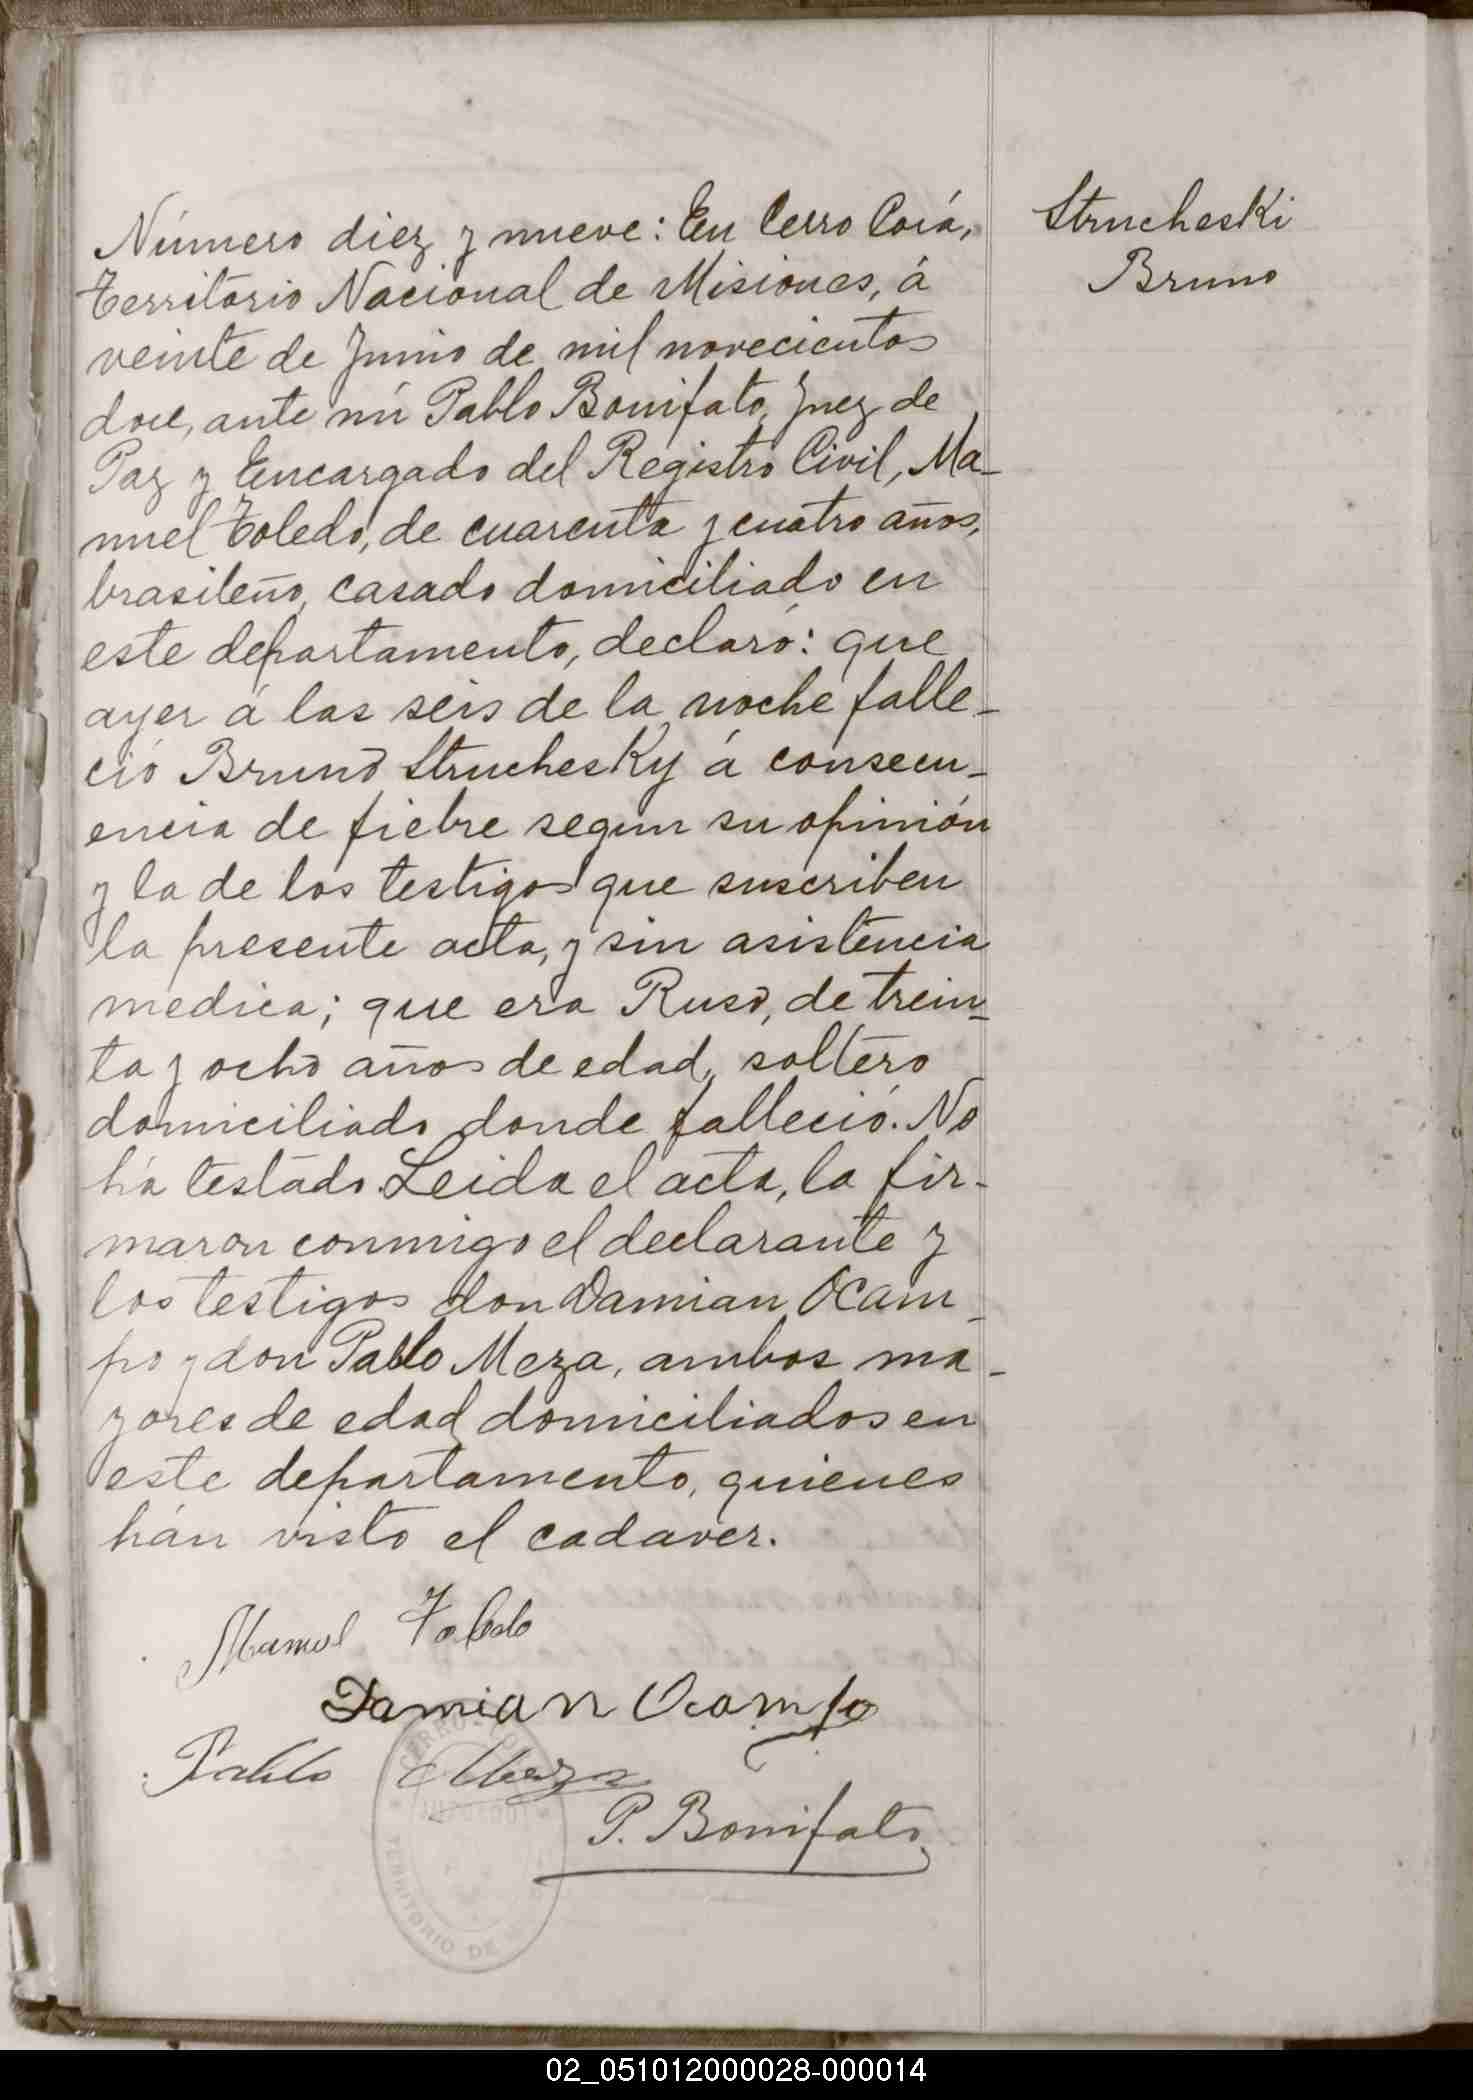 Número diez y nueve: En Cerro Corá,
Territorio Nacional de Misiones, á
veinte de Junio de mil novecientos
doce, ante mi Pablo Bonifato, Juez de
Paz y Encargado del Registro Civil, Ma-
nuel Toledo, de cuarenta y cuatro años,
brasileño, casado domiciliado en
este departamento, declaró: que
ayer á las seis de la noche falle-
ció Bruno Struchesky á consecu-
encia de fiebre segun su opinión
y la de los testigos que suscriben
la presente acta, y sin asistencia
medica; que era Ruso, de trein-
ta y ocho años de edad, soltero
domiciliado donde falleció. No
há testado. Leida el acta, la fir-
maron conmigo el declarante y
los testigos don Damian Ocam-
po y don Pablo Meza, ambos ma-
yores de edad domiciliados en
este departamento, quienes
hán visto el cadaver.
Manuel Toledo
Damian Ocampo
Pablo Meza
P. Bonifato
CERRO
TERRITORIO DE
Strucheski
Bruno
02_051012000028-000014